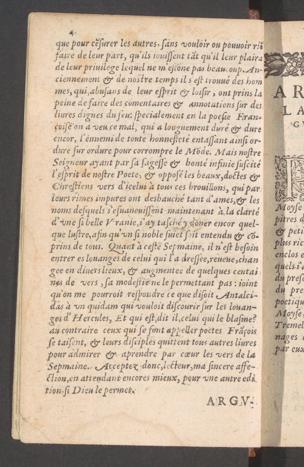 que pour cẽsurer les autres, sans vouloir ou pouvoir riẽ
faire de leur part, qu'ils iouissent tãt qu'il leur plaira
de leur privilege lequel ne m'estõne pas beaucoup. An-
ciennement & de nostre temps il s'est trouué des hom
mes, qui, abusans de leur esprit & loisir, ont prins la
peine de faire des cõmentaires & annotations sur des
livres dignes du feu, specialement en la poësie Fran-
çoise on a veu ce mal, qui a longuement duré & dure
encor, l'ennemi de toute honnesteté entassant ainsi or-
dure sur ordure pour corrompre le Mõde. Mais nostre
Seigneur ayant par sa sagesse & bonté infinie suscité
l'esprit de nostre Poete, & opposé les beaux, doctes &
Chrestiens vers d'icelui à tous ces brouillons, qui par
leurs rimes impures ont desbauché tant d'ames, & les
noms desquels s'esuanouissent maintenant à la clarté
d'une si belle Vranie, i'ay tasché y dõner encor quel-
que lustre, afin qu'un si noble suiect soit entendu & cõ-
prins de tous. Quant à ceste Sepmaine, il n'est besoin
entrer es louanges de celui qui l'a dressee, reueue, chan
gee en divers lieux, & augmentee de quelques centai
nes de vers, sa modestie ne le permettant pas: ioint
qu'on me pourroit respondre ce que disoit Antalci-
das à vn quidam qui vouloit discourir sur les louan-
ges d'Hercules, Et qui est, dit-il, celui qui le blasme?
au contraire ceux qui se font appeller poetes Frãçois
se taisent, & leurs disciples quittent tous autres livres
pour admirer & aprendre par cœur les vers de la
Sepmaine. Acceptez donc, lecteur, ma sincere affe-
ction, en attendant encores mieux, pour vne autre edi
tion, si Dieu le permet.
ARGV-
AR
LA
Moyse
pitres d
& peti
plus ric
enclos e
quels i'a
du prese
du pre
poetiqu
Moyse
Tremel
nages
par eux